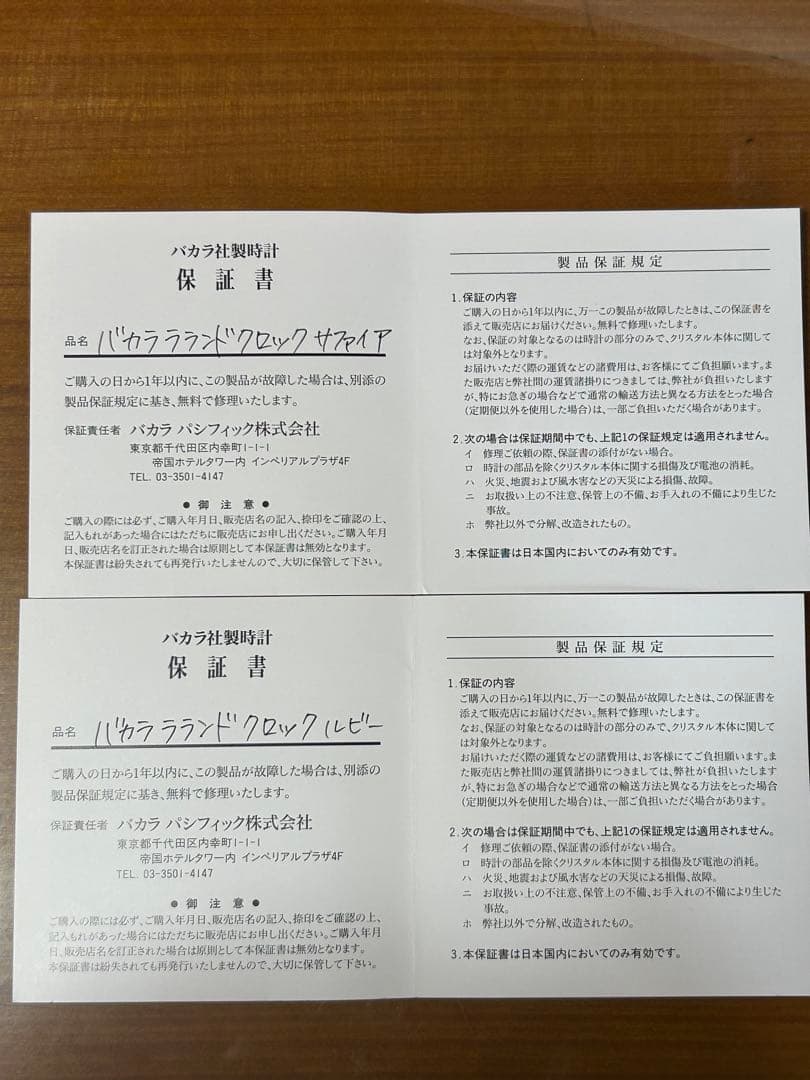 バカラ社製時計
保証書
品名 バカララランドクロックサファイア
ご購入の日から1年以内に、この製品が故障した場合は、別添の
製品保証規定に基き、無料で修理いたします。
保証責任者 バカラ パシフィック株式会社
東京都千代田区内幸町1-1-1
帝国ホテルタワー内 インペリアルプラザ4F
TEL. 03-3501-4147
● 御 注 意 ●
ご購入の際には必ず、ご購入年月日、販売店名の記入、捺印をご確認の上、
記入もれがあった場合にはただちに販売店にお申し出ください。ご購入年月
日、販売店名を訂正された場合は原則として本保証書は無効となります。
本保証書は紛失されても再発行いたしませんので、大切に保管して下さい。
製品保証規定
1.保証の内容
ご購入の日から1年以内に、万一この製品が故障したときは、この保証書を
添えて販売店にお届けください。無料で修理いたします。
なお、保証の対象となるのは時計の部分のみで、クリスタル本体に関して
は対象外となります。
お届けいただく際の運賃などの諸費用は、お客様にてご負担願います。ま
た販売店と弊社間の運賃諸掛りにつきましては、弊社が負担いたします
が、特にお急ぎの場合などで通常の輸送方法と異なる方法をとった場合
(定期便以外を使用した場合)は、一部ご負担いただく場合があります。
2.次の場合は保証期間中でも、上記1の保証規定は適用されません。
イ 修理ご依頼の際、保証書の添付がない場合。
ロ 時計の部品を除くクリスタル本体に関する損傷及び電池の消耗。
ハ 火災、地震および風水害などの天災による損傷、故障。
ニ お取扱い上の不注意、保管上の不備、お手入れの不備により生じた
事故。
ホ 弊社以外で分解、改造されたもの。
3.本保証書は日本国内においてのみ有効です。
バカラ社製時計
保証書
品名 バカララランドクロックルビー
ご購入の日から1年以内に、この製品が故障した場合は、別添の
製品保証規定に基き、無料で修理いたします。
保証責任者 バカラ パシフィック株式会社
東京都千代田区内幸町1-1-1
帝国ホテルタワー内 インペリアルプラザ4F
TEL. 03-3501-4147
● 御 注 意 ●
ご購入の際には必ず、ご購入年月日、販売店名の記入、捺印をご確認の上、
記入もれがあった場合にはただちに販売店にお申し出ください。ご購入年月
日、販売店名を訂正された場合は原則として本保証書は無効となります。
本保証書は紛失されても再発行いたしませんので、大切に保管して下さい。
製品保証規定
1.保証の内容
ご購入の日から1年以内に、万一この製品が故障したときは、この保証書を
添えて販売店にお届けください。無料で修理いたします。
なお、保証の対象となるのは時計の部分のみで、クリスタル本体に関して
は対象外となります。
お届けいただく際の運賃などの諸費用は、お客様にてご負担願います。ま
た販売店と弊社間の運賃諸掛りにつきましては、弊社が負担いたします
が、特にお急ぎの場合などで通常の輸送方法と異なる方法をとった場合
(定期便以外を使用した場合)は、一部ご負担いただく場合があります。
2.次の場合は保証期間中でも、上記1の保証規定は適用されません。
イ 修理ご依頼の際、保証書の添付がない場合。
ロ 時計の部品を除くクリスタル本体に関する損傷及び電池の消耗。
ハ 火災、地震および風水害などの天災による損傷、故障。
ニ お取扱い上の不注意、保管上の不備、お手入れの不備により生じた
事故。
ホ 弊社以外で分解、改造されたもの。
3.本保証書は日本国内においてのみ有効です。